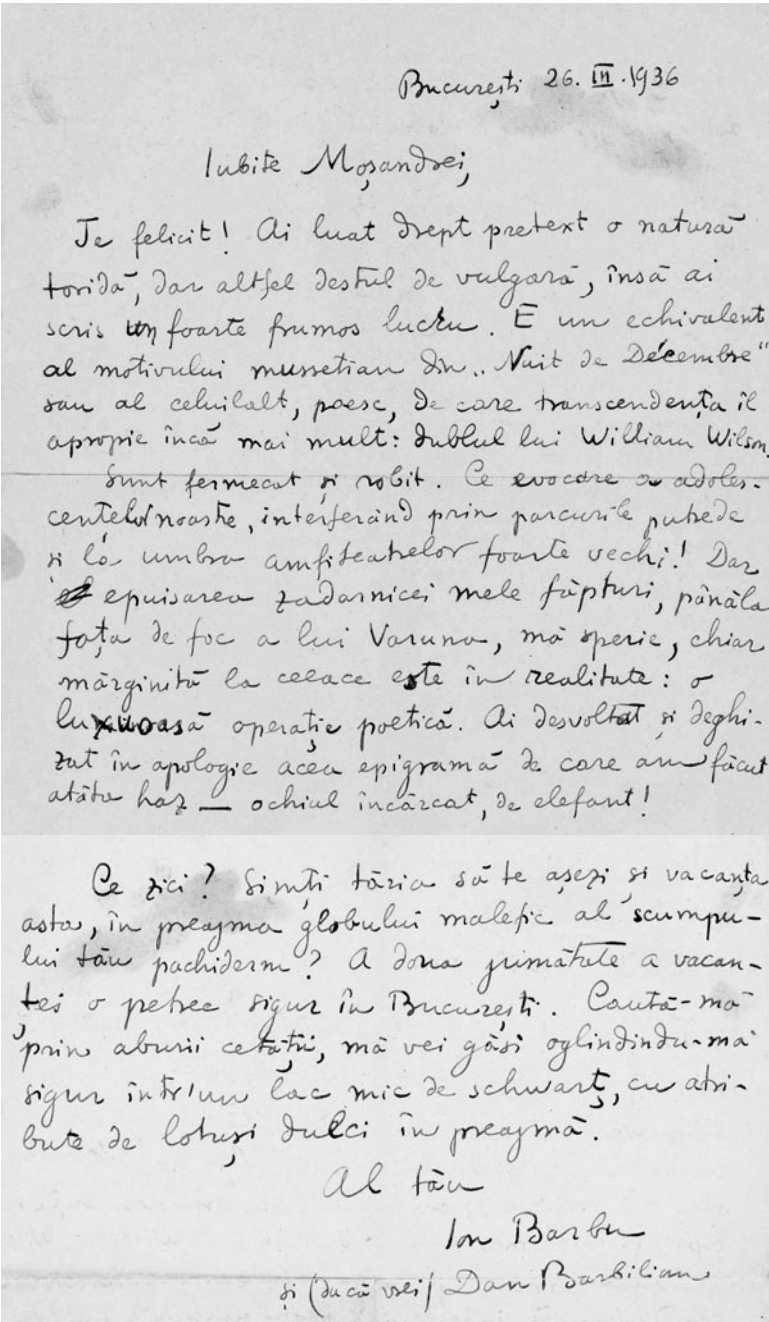 București 26. III. 1936
Iubite Moșandrei,
Te felicit! Ai luat drept pretext o natură
toridă, dar altfel destul de vulgară, însă ai
scris un foarte frumos lucru. E un echivalent
al motivului mussetian din „Nuit de Décembre"
sau al celuilalt, poesc, de care transcendența îl
apropie încă mai mult: dublul lui William Wilson.
Sunt fermecat și robit. Ce evocare a adoles-
cențelor noastre, interferând prin parcurile putrede
și la umbra amfiteatrelor foarte vechi! Dar
epuisarea zadarnicei mele făpturi, până la
fața de foc a lui Varuna, mă sperie, chiar
mărginită la ceeace este în realitate: o
luxuoasă operație poetică. Ai desvoltat și deghi-
zat în apologie acea epigramă de care am făcut
atâta haz — ochiul încărcat, de elefant!
Ce zici? Simți tăria să te așezi și vacanța
asta, în preajma globului malefic al scumpu-
lui tău pachiderm? A doua jumătate a vacan-
ței o petrec sigur în București. Caută-mă
prin aburii cetății, mă vei găsi oglindindu-mă
sigur într'un lac mic de schwarț, cu atri-
bute de lotuși dulci în preajmă.
Al tău
Ion Barbu
și (dacă vrei) Dan Barbilian